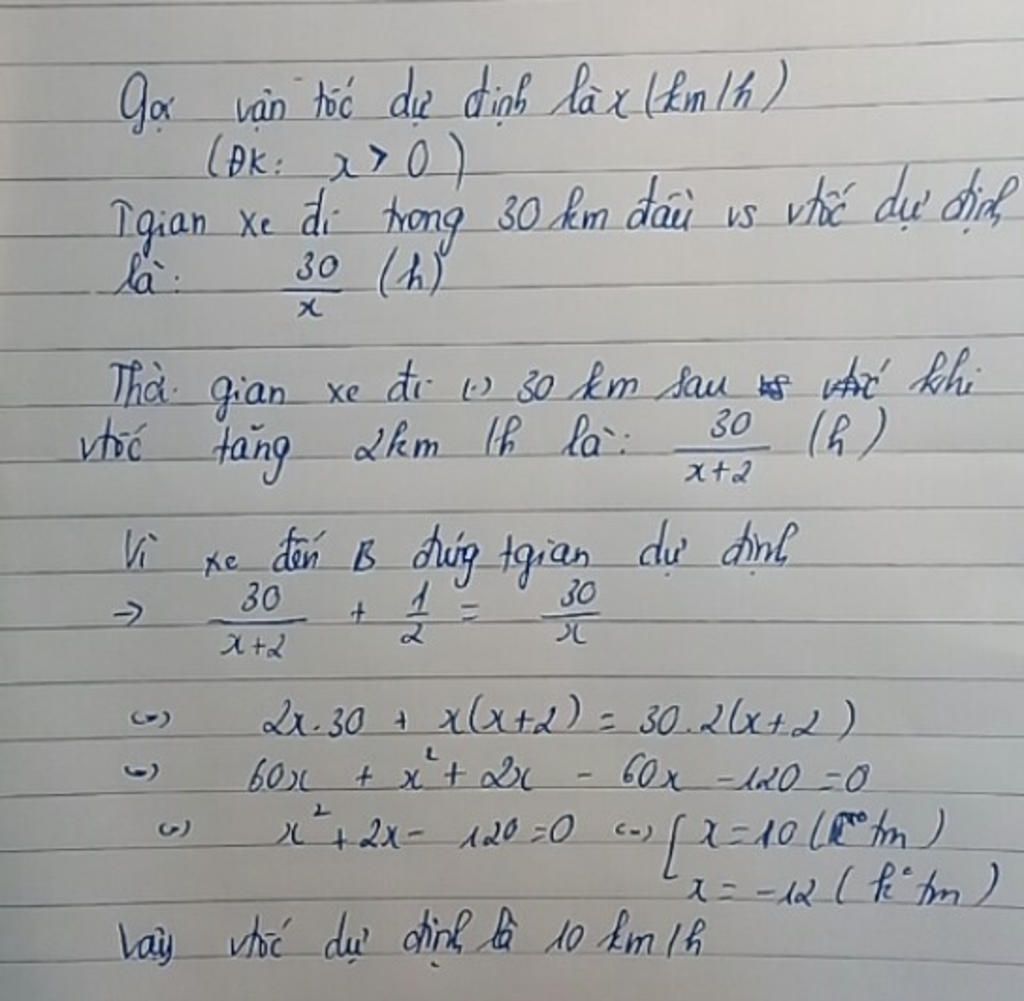 Gọi vận tốc dự định là x (km/h)
(ĐK: x > 0)
Tgian xe đi trong 30 km đầu vs vtốc dự định
là: 30/x (h)
Thời gian xe đi (.) 30 km sau khi
vtốc tăng 2km /h là: 30/(x+2) (h)
Vì xe đến B đúng tgian dự định
→ 30/(x+2) + 1/2 = 30/x
<=> 2x.30 + x(x+2) = 30.2(x+2)
<=> 60x + x² + 2x - 60x - 120 = 0
<=> x² + 2x - 120 = 0 <=> [ x = 10 (tm)
x = -12 (k° tm)
Vậy vtốc dự định là 10 km/h